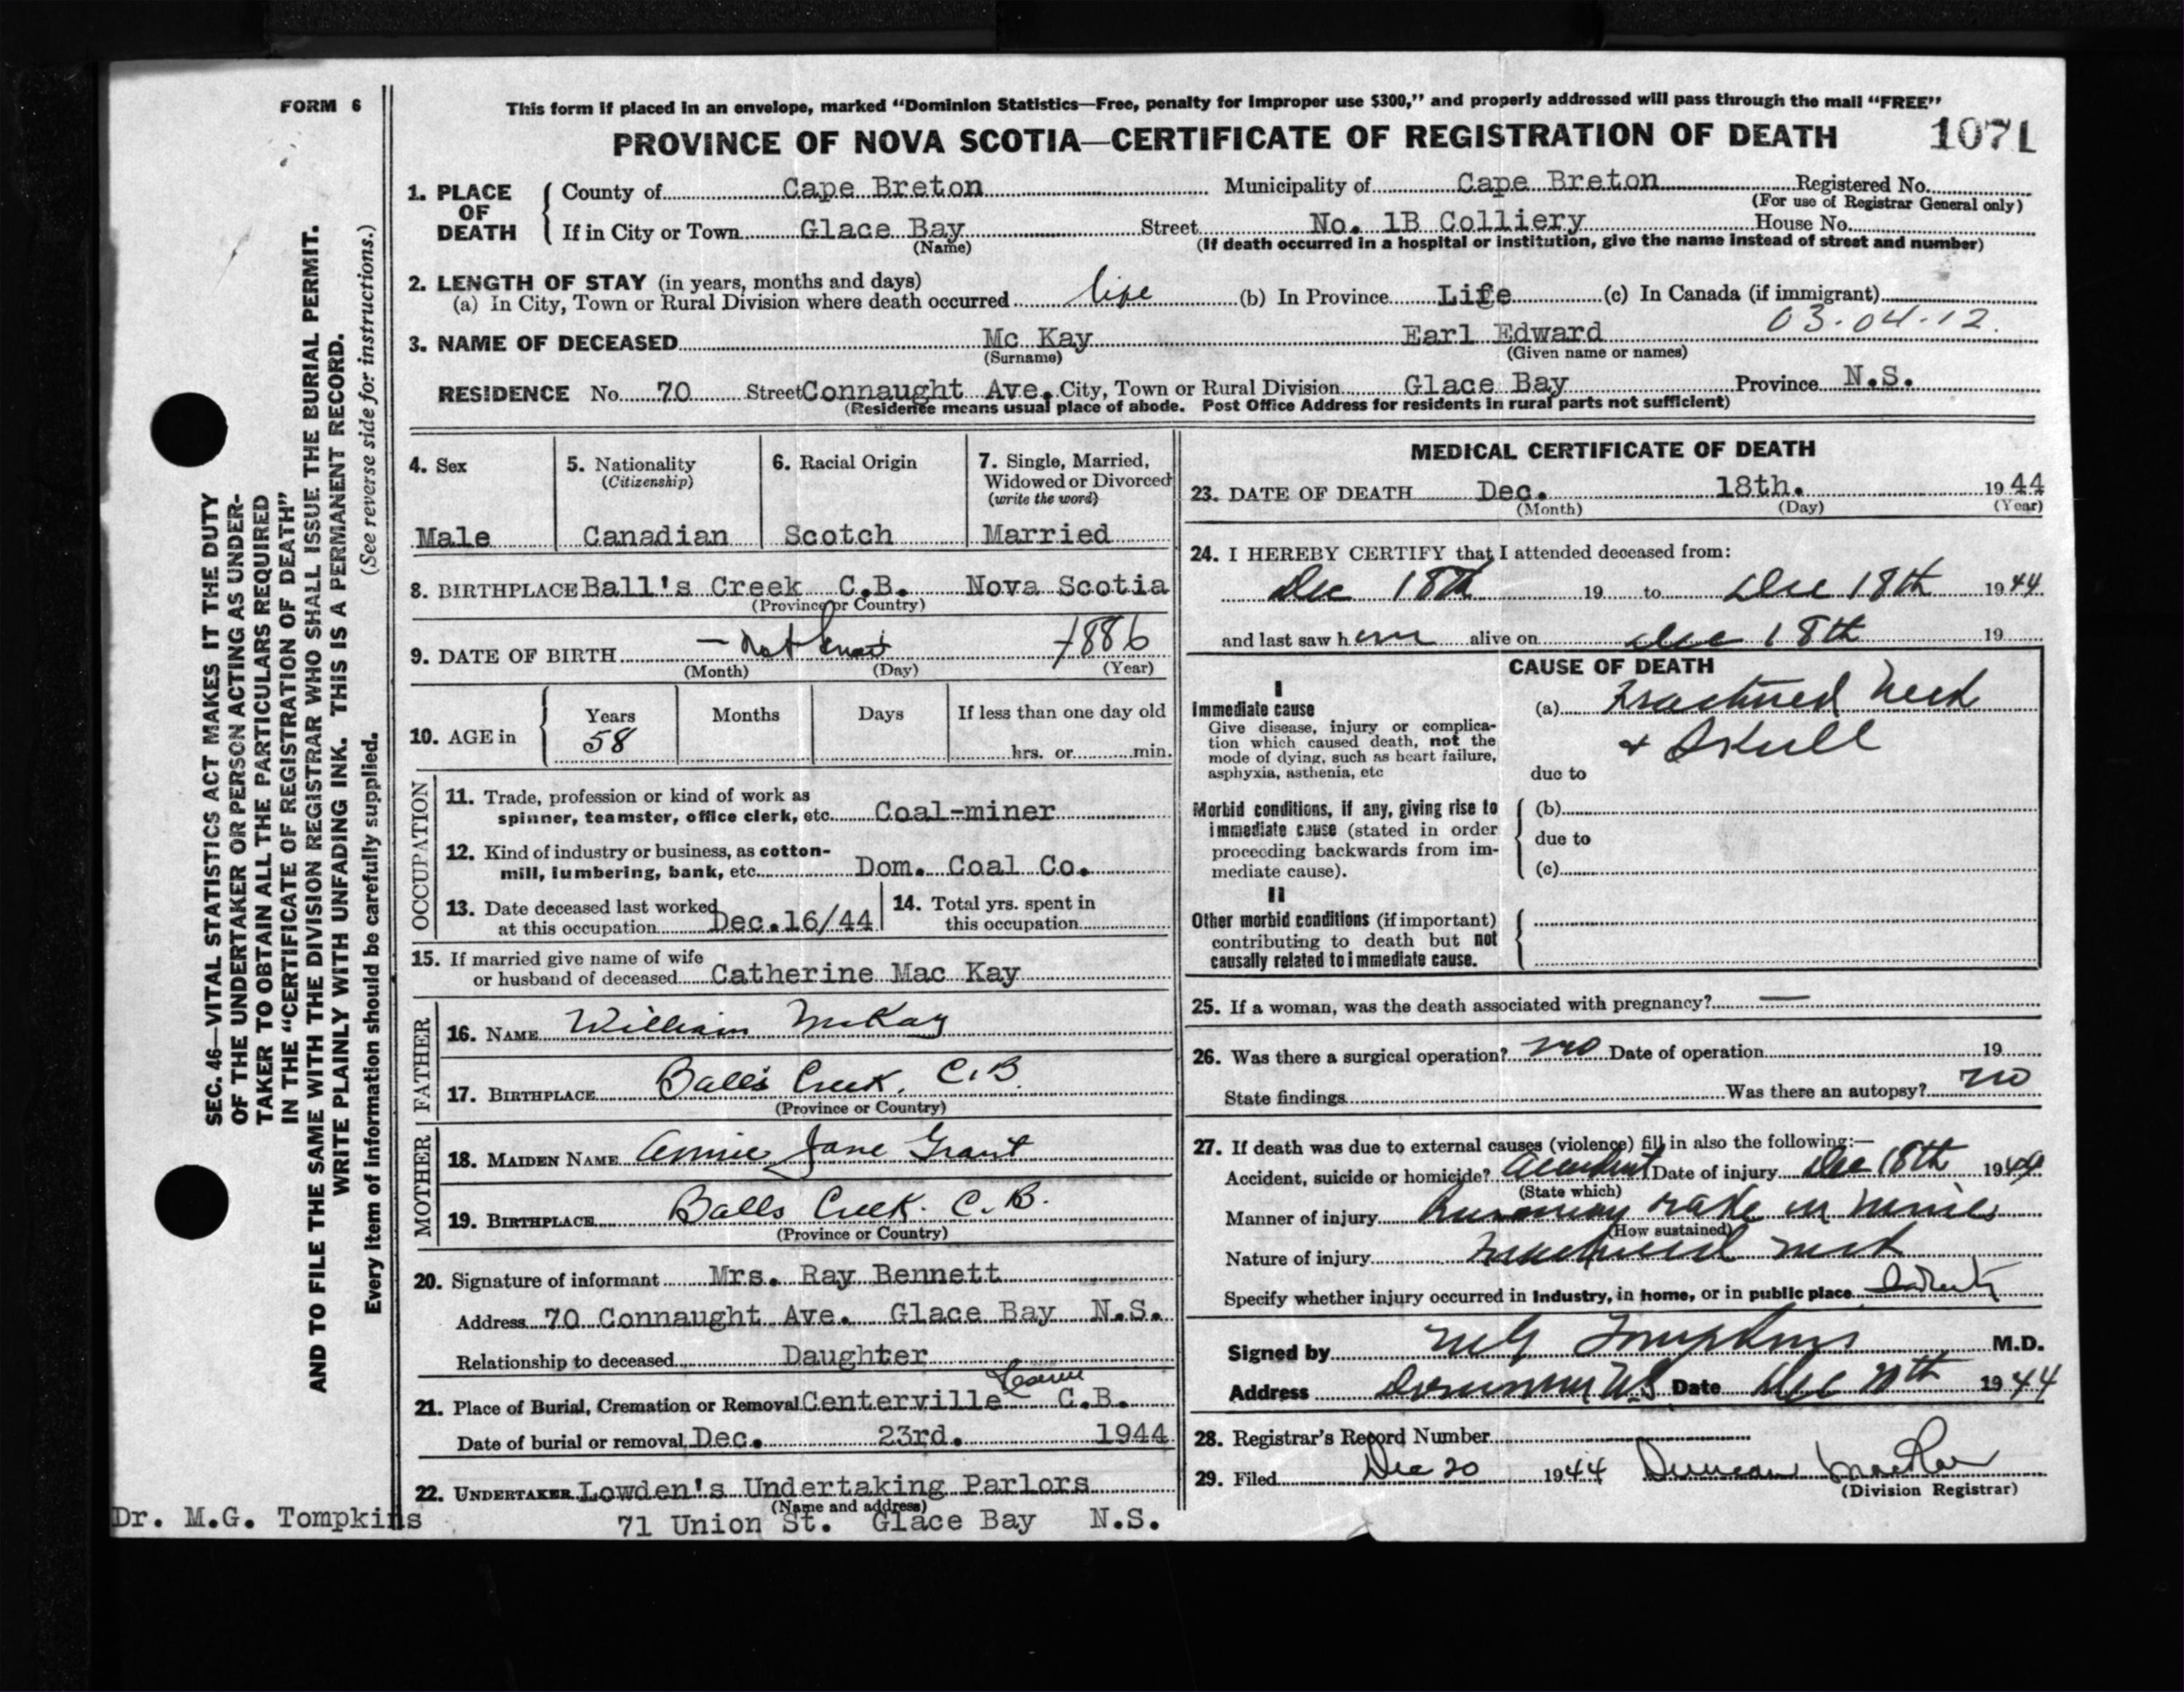 FORM 6
This form if placed in an envelope, marked “Dominion Statistics—Free, penalty for improper use $300,” and properly addressed will pass through the mail “FREE”
PROVINCE OF NOVA SCOTIA—CERTIFICATE OF REGISTRATION OF DEATH 1071
1. PLACE OF DEATH County of Cape Breton Municipality of Cape Breton Registered No.
(For use of Registrar General only)
If in City or Town Glace Bay Street No. 1B Colliery House No.
(Name) (If death occurred in a hospital or institution, give the name instead of street and number)
2. LENGTH OF STAY (in years, months and days)
(a) In City, Town or Rural Division where death occurred life (b) In Province Life (c) In Canada (if immigrant)
03.04.12.
3. NAME OF DECEASED Mc Kay Earl Edward
(Surname) (Given name or names)
RESIDENCE No. 70 Street Connaught Ave. City, Town or Rural Division Glace Bay Province N.S.
(Residence means usual place of abode. Post Office Address for residents in rural parts not sufficient)
4. Sex 5. Nationality 6. Racial Origin 7. Single, Married,
(Citizenship) Widowed or Divorced
(write the word)
Male Canadian Scotch Married
8. BIRTHPLACE Ball's Creek C.B. Nova Scotia
(Province or Country)
9. DATE OF BIRTH — Not 1886
(Month) (Day) (Year)
10. AGE in Years Months Days If less than one day old
58 hrs. or min.
OCCUPATION
11. Trade, profession or kind of work as
spinner, teamster, office clerk, etc. Coal-miner
12. Kind of industry or business, as cotton-
mill, lumbering, bank, etc. Dom. Coal Co.
13. Date deceased last worked 14. Total yrs. spent in
at this occupation Dec.16/44 this occupation
15. If married give name of wife
or husband of deceased Catherine Mac Kay
FATHER
16. NAME William McKay
17. BIRTHPLACE Ball's Creek. C.B.
(Province or Country)
MOTHER
18. MAIDEN NAME Annie Jane Grant
19. BIRTHPLACE Balls Creek. C.B.
(Province or Country)
20. Signature of informant Mrs. Ray Bennett
Address 70 Connaught Ave. Glace Bay N.S.
Relationship to deceased Daughter
21. Place of Burial, Cremation or Removal Centerville C.B.
Date of burial or removal Dec. 23rd. 1944
22. UNDERTAKER Lowden's Undertaking Parlors
(Name and address)
71 Union St. Glace Bay N.S.
Dr. M.G. Tompkins
MEDICAL CERTIFICATE OF DEATH
23. DATE OF DEATH Dec. 18th. 1944
(Month) (Day) (Year)
24. I HEREBY CERTIFY that I attended deceased from:
Dec 18th 19 to Dec 18th 1944
and last saw h alive on Dec 18th 19
CAUSE OF DEATH
I
Immediate cause (a) Fractured Neck
Give disease, injury or complica-
tion which caused death, not the + Skull
mode of dying, such as heart failure,
asphyxia, asthenia, etc due to
Morbid conditions, if any, giving rise to (b)
immediate cause (stated in order
proceeding backwards from im- due to
mediate cause). (c)
II
Other morbid conditions (if important)
contributing to death but not
causally related to immediate cause.
25. If a woman, was the death associated with pregnancy? —
26. Was there a surgical operation? no Date of operation 19
State findings Was there an autopsy? no
27. If death was due to external causes (violence) fill in also the following:—
Accident, suicide or homicide? Accident Date of injury Dec 18th 1944
(State which)
Manner of injury Runaway rake in mines
(How sustained)
Nature of injury Fractured neck
Specify whether injury occurred in industry, in home, or in public place Industry
Signed by M G Tompkins M.D.
Address Dominion N.S. Date Dec 20th 1944
28. Registrar's Record Number
29. Filed Dec 20 1944 Duncan
(Division Registrar)
SEC. 46—VITAL STATISTICS ACT MAKES IT THE DUTY
OF THE UNDERTAKER OR PERSON ACTING AS UNDER-
TAKER TO OBTAIN ALL THE PARTICULARS REQUIRED
IN THE “CERTIFICATE OF REGISTRATION OF DEATH”
AND TO FILE THE SAME WITH THE DIVISION REGISTRAR WHO SHALL ISSUE THE BURIAL PERMIT.
WRITE PLAINLY WITH UNFADING INK. THIS IS A PERMANENT RECORD.
Every item of information should be carefully supplied. (See reverse side for instructions.)